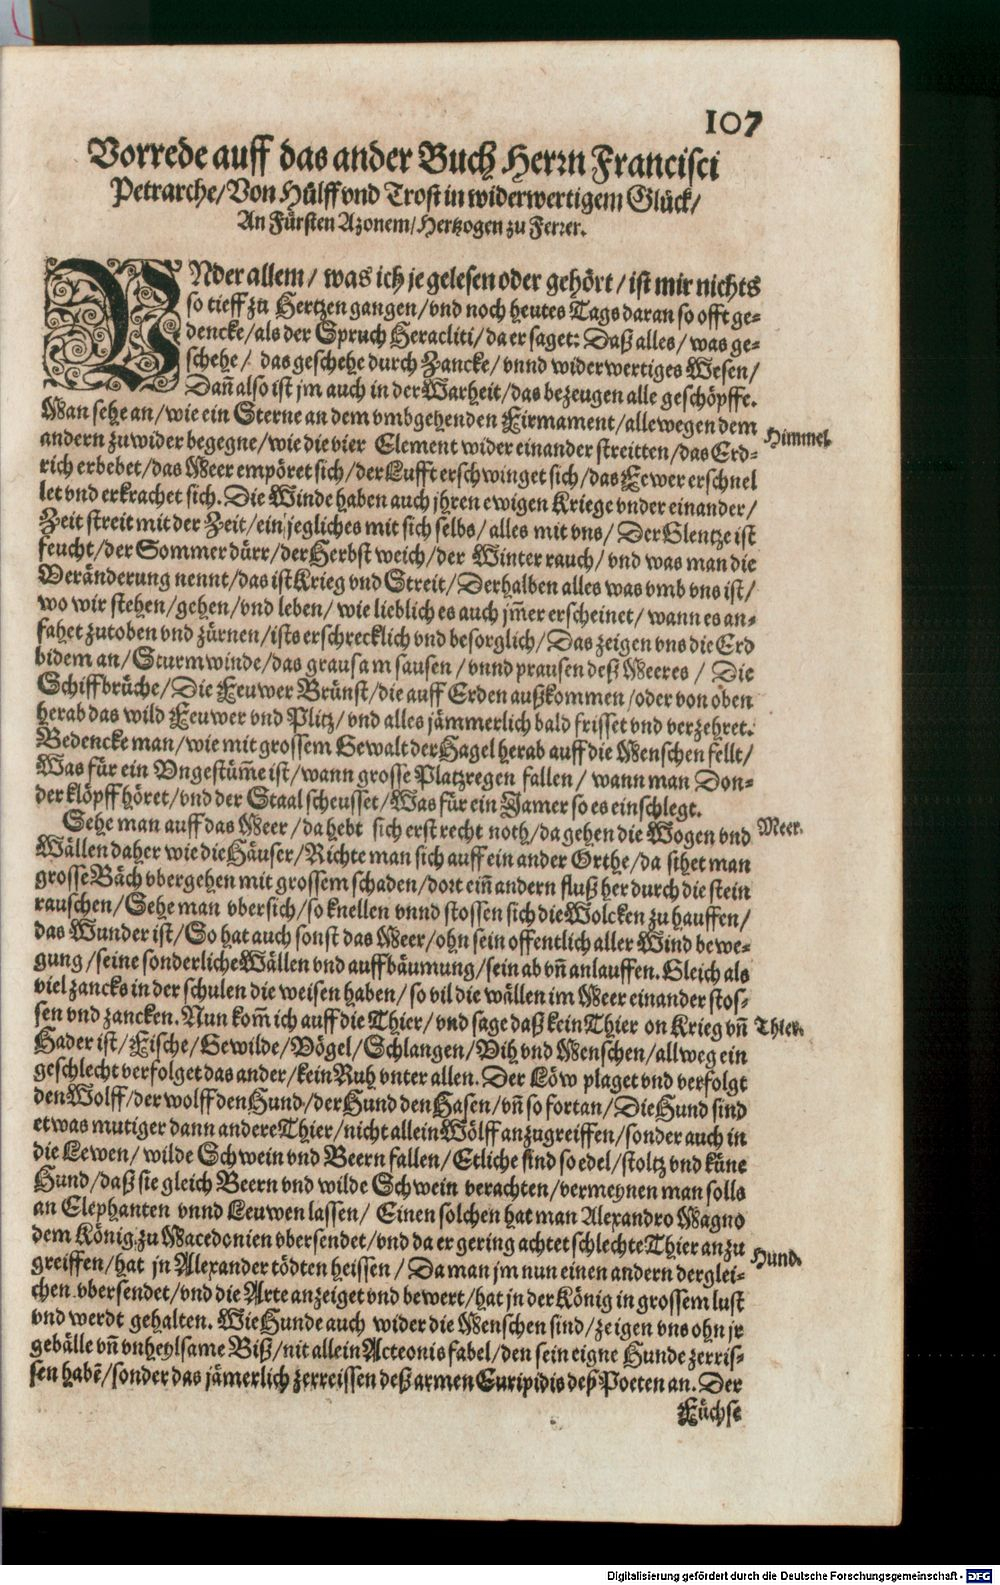 107
Vorrede auff das ander Buch Herrn Francisci
Petrarche/Von Hülff vnd Trost in widerwertigem Glück/
An Fürsten Azonem/Hertzogen zu Ferrer.
VNder allem/ was ich je gelesen oder gehört/ ist mir nichts
so tieff zu Hertzen gangen/vnd noch heutes Tags daran so offt ge-
dencke/als der Spruch Heracliti/da er saget: Daß alles/ was ge-
schehe/ das geschehe durch Zancke/ vnnd widerwertiges Wesen/
Dañ also ist jm auch in der Warheit/das bezeugen alle geschöpffe.
Man sehe an/wie ein Sterne an dem vmbgehenden Firmament/allewegen dem
Himmel.
andern zuwider begegne/wie die vier Element wider einander streitten/das Erd-
rich erbebet/das Meer empöret sich/der Lufft erschwinget sich/das Fewer erschnel
let vnd erkrachet sich. Die Winde haben auch jhren ewigen Kriege vnder einander/
Zeit streit mit der Zeit/ein jegliches mit sich selbs/alles mit vns/ Der Glentze ist
feucht/der Sommer dürr/der Herbst weich/der Winter rauch/ vnd was man die
Veränderung nennt/das ist Krieg vnd Streit/ Derhalben alles was vmb vns ist/
wo wir stehen/gehen/vnd leben/ wie lieblich es auch jm̃er erscheinet/ wann es an-
fahet zutoben vnd zürnen/ists erschrecklich vnd besorglich/ Das zeigen vns die Erd
bidem an/Sturmwinde/das grausam sausen/vnnd prausen deß Meeres/ Die
Schiffbrüche/Die Feuwer Brünst/die auff Erden außkommen/oder von oben
herab das wild Feuwer vnd Plitz/vnd alles jämmerlich bald frisset vnd verzehret.
Bedencke man/wie mit grossem Gewalt der Hagel herab auff die Menschen fellt/
Was für ein Vngestüm̃e ist/wann grosse Platzregen fallen/ wann man Don-
der klöpff höret/vnd der Staal scheusset/Was für ein Jamer so es einschlegt.
Sehe man auff das Meer/da hebt sich erst recht noth/da gehen die Wogen vnd
Meer.
Wällen daher wie die Häuser/Richte man sich auff ein ander Orthe/da sihet man
grosse Bäch vbergehen mit grossem schaden/dort einñ andern fluß her durch die stein
rauschen/Sehe man vbersich/so knellen vnnd stossen sich die Wolcken zu hauffen/
das Wunder ist/So hat auch sonst das Meer/ohn sein offentlich aller Wind bewe-
gung/seine sonderliche Wällen vnd auffbäumung/sein ab vñ anlauffen. Gleich als
viel zancks in der schulen die weisen haben/so vil die wällen im Meer einander stos-
sen vnd zancken. Nun kom̃ ich auff die Thier/vnd sage daß kein Thier on Krieg vñ
Thier.
Hader ist/Fische/Gewilde/Vögel/Schlangen/Vih vnd Menschen/allweg ein
geschlecht verfolget das ander/kein Ruh vnter allen. Der Löw plaget vnd verfolgt
den Wolff/der wolff den Hund/der Hund den Hasen/vñ so fortan/Die Hund sind
etwas mutiger dann andere Thier/nicht allein Wölff anzugreiffen/sonder auch in
die Lewen/ wilde Schwein vnd Beern fallen/Etliche sind so edel/stoltz vnd küne
Hund/daß sie gleich Beern vnd wilde Schwein verachten/vermeynen man solls
an Elephanten vnnd Leuwen lassen/ Einen solchen hat man Alexandro Magno
dem König zu Macedonien vbersendet/vnd da er gering achtet schlechte Thier anzu
Hund.
greiffen/hat jn Alexander tödten heissen/ Da man jm nun einen andern derglei-
chen vbersendet/vnd die Arte anzeiget vnd bewert/hat jn der König in grossem lust
vnd werdt gehalten. Wie Hunde auch wider die Menschen sind/zeigen vns ohn jr
gebälle vñ vnheylsame Biß/nit allein Acteonis fabel/den sein eigne Hunde zerris-
sen habẽ/sonder das jämerlich zerreissen deß armen Euripidis deß Poeten an. Der
Füchse
Digitalisierung gefördert durch die Deutsche Forschungsgemeinschaft - DFG